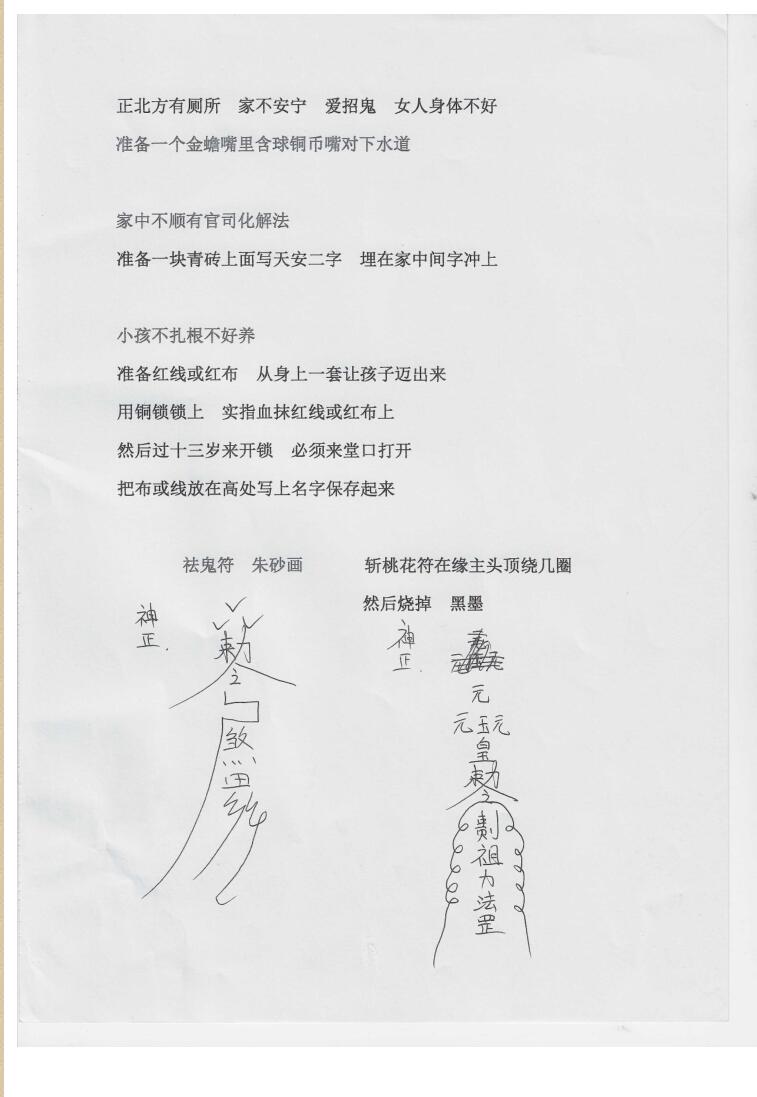 正北方有厕所　家不安宁　爱招鬼　女人身体不好
准备一个金蟾嘴里含球铜币嘴对下水道
家中不顺有官司化解法
准备一块青砖上面写天安二字　埋在家中间字冲上
小孩不扎根不好养
准备红线或红布　从身上一套让孩子迈出来
用铜锁锁上　实指血抹红线或红布上
然后过十三岁来开锁　必须来堂口打开
把布或线放在高处写上名字保存起来
祛鬼符　朱砂画
神正
敕
之
煞
斩桃花符在缘主头顶绕几圈
然后烧掉　黑墨
神正
元
元玉元
皇
敕
之
祖
力
法
罡